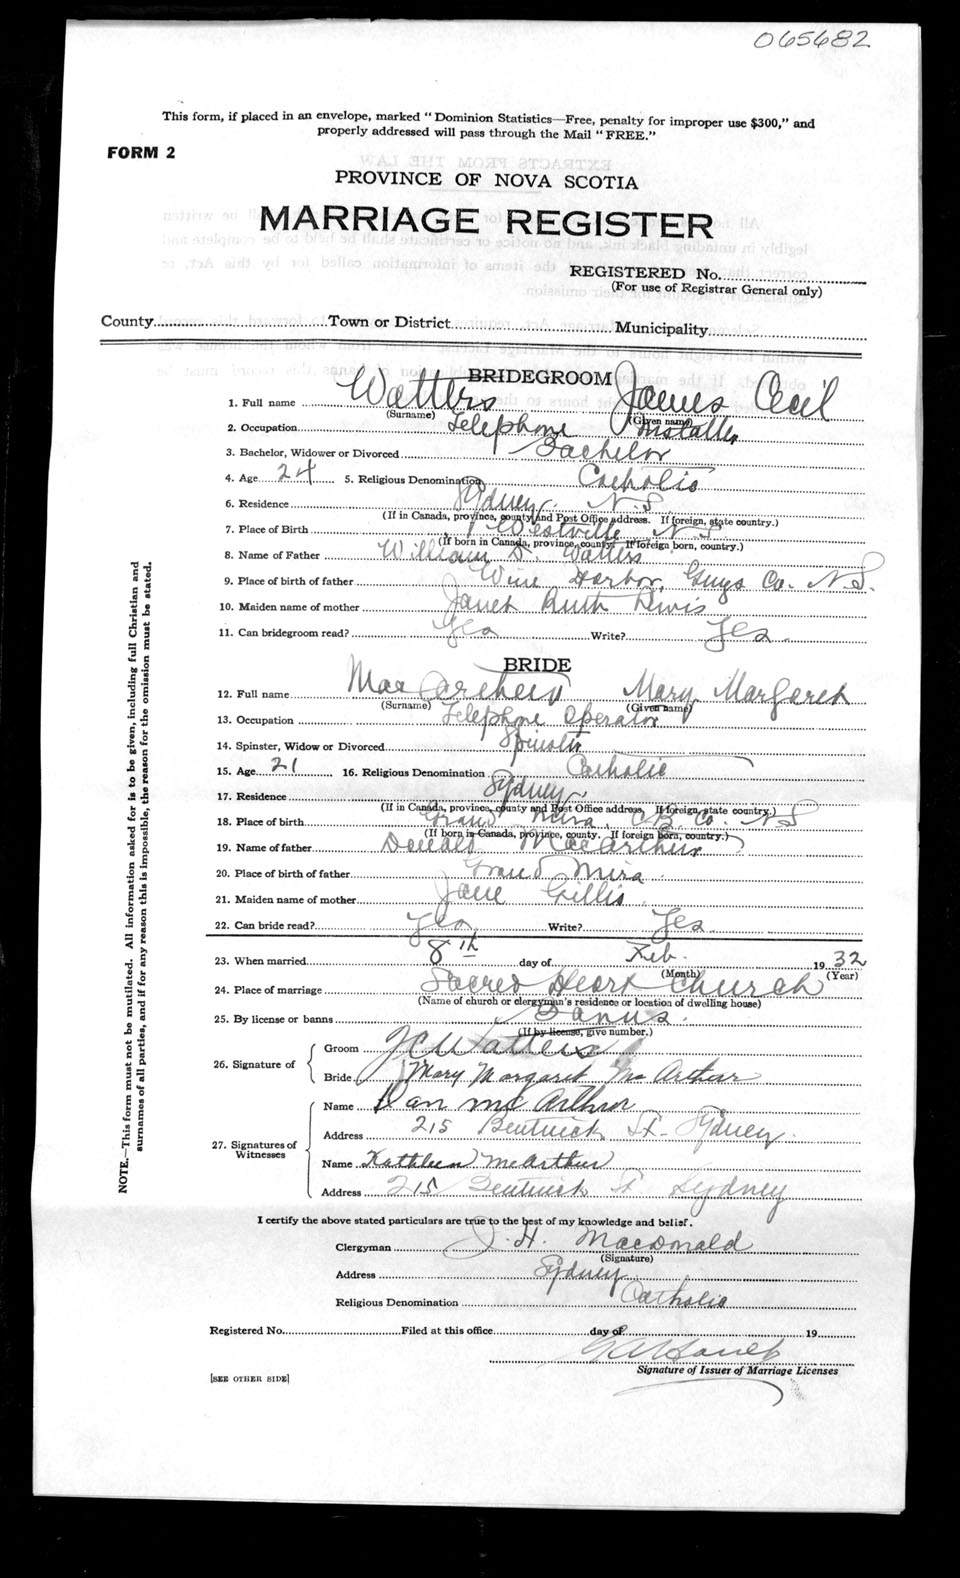 065682
This form, if placed in an envelope, marked "Dominion Statistics—Free, penalty for improper use $300," and
properly addressed will pass through the Mail "FREE."
FORM 2
PROVINCE OF NOVA SCOTIA
MARRIAGE REGISTER
REGISTERED No.
(For use of Registrar General only)
County Town or District Municipality
BRIDEGROOM
1. Full name Watters James Cecil
(Surname) (Given name)
2. Occupation Telephone Installer
3. Bachelor, Widower or Divorced Bachelor
4. Age 24 5. Religious Denomination Catholic
6. Residence Sydney N.S.
(If in Canada, province, county and Post Office address. If foreign, state country.)
7. Place of Birth Westville N S
(If born in Canada, province, county. If foreign born, country.)
8. Name of Father William D. Watters
9. Place of birth of father Wine Harbor, Guys Co. N.S.
10. Maiden name of mother Janet Ruth
11. Can bridegroom read? Yes Write? Yes.
BRIDE
12. Full name MacArthur Mary Margaret
(Surname) (Given name)
13. Occupation Telephone Operator
14. Spinster, Widow or Divorced Spinster
15. Age 21 16. Religious Denomination Catholic
17. Residence Sydney.
(If in Canada, province, county and Post Office address, If foreign, state country.)
18. Place of birth Grand Mira, C.B. Co. N S
(If born in Canada, province, county. If foreign born, country.)
19. Name of father Donald MacArthur
20. Place of birth of father Grand Mira.
21. Maiden name of mother Jane Gillis.
22. Can bride read? Yes Write? Yes
23. When married 8th day of Feb. 1932
(Month) (Year)
24. Place of marriage Sacred Heart Church
(Name of church or clergyman's residence or location of dwelling house)
25. By license or banns Banns.
(If by license, give number.)
26. Signature of
Groom J C Watters
Bride Mary Margaret McArthur
27. Signatures of
Witnesses
Name Dan McArthur
Address 215 Bentinck St. Sydney.
Name Kathleen McArthur
Address 215 Bentinck St Sydney
I certify the above stated particulars are true to the best of my knowledge and belief.
Clergyman J. H. MacDonald
(Signature)
Address Sydney
Religious Denomination Catholic
Registered No. Filed at this office day of 19
Signature of Issuer of Marriage Licenses
[SEE OTHER SIDE]
NOTE.—This form must not be mutilated. All information asked for is to be given, including full Christian and
surnames of all parties, and if for any reason this is impossible, the reason for the omission must be stated.